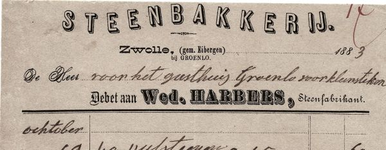 STEENBAKKERIJ.
Zwolle, (gem. Eibergen)
bij GROENLO.
1883
De Heer voor het gasthuis Groenlo voor
Debet aan Wed. HARBERS, Steenfabrikant.
october